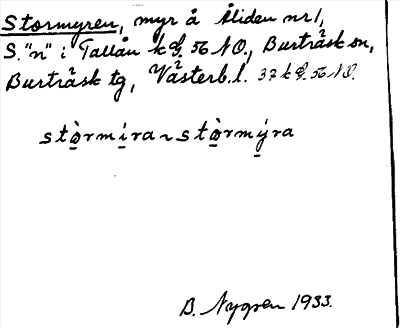 Stormyren, myr å Åliden nr 1,
S. "n" i Tallån k bl. 56 NO., Burträsk sn,
Burträsk tg, Västerb. l. 37 k bl. 56 NO.
stòrmira ~ stòrmýra
B. Nygren 1933.